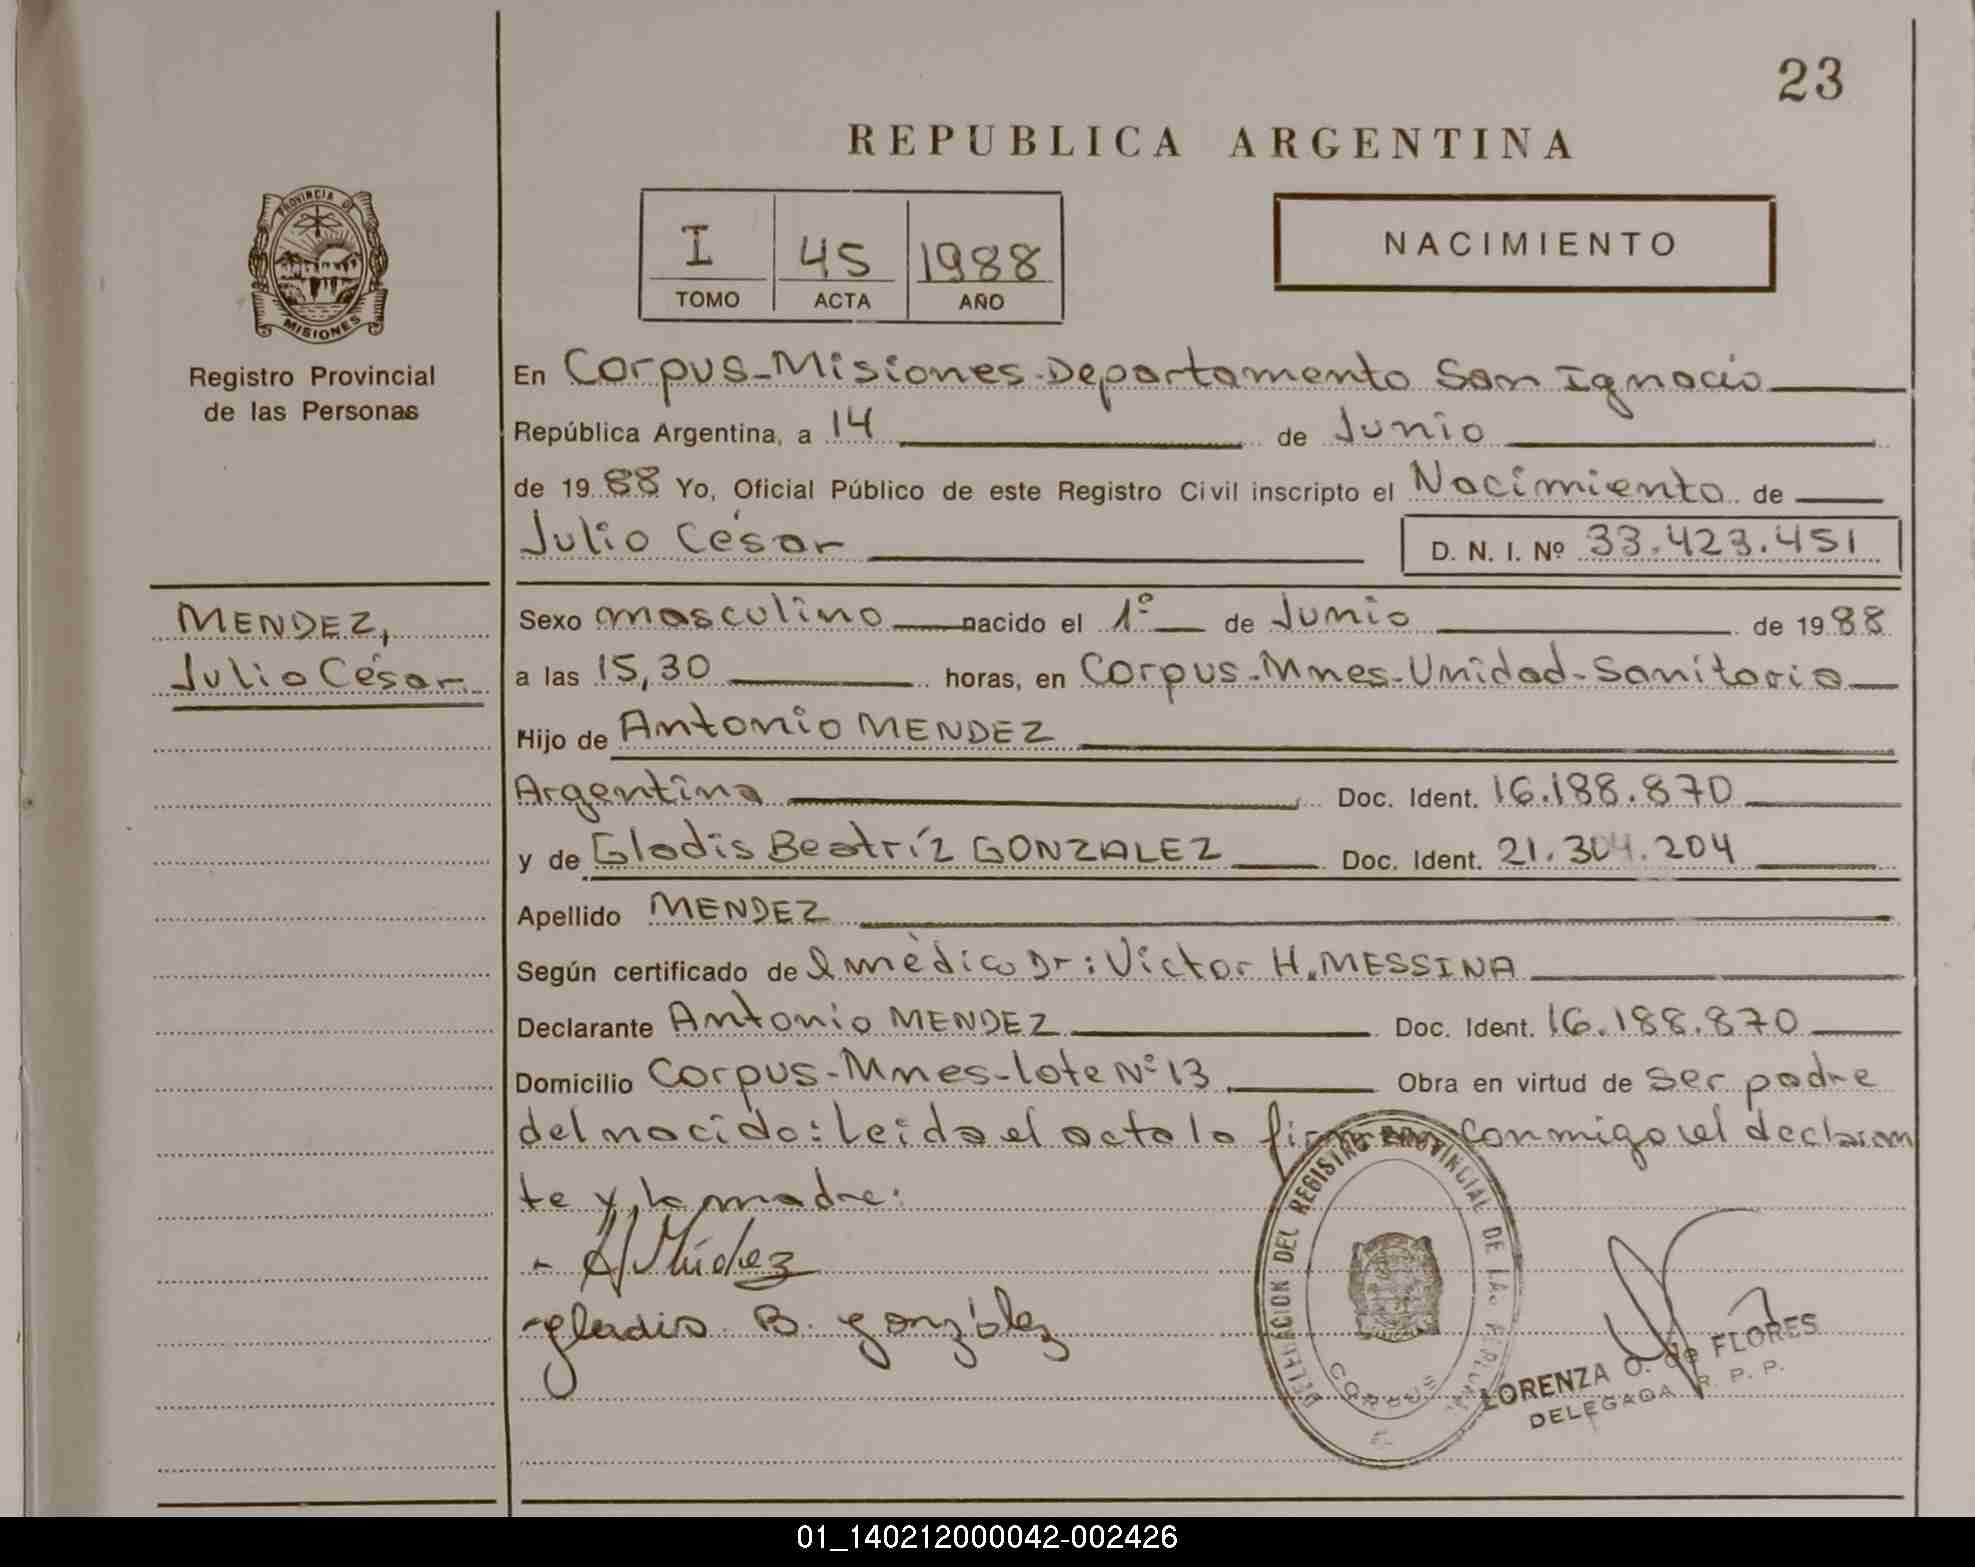 23
REPUBLICA ARGENTINA
PROVINCIA DE
MISIONES
Registro Provincial
de las Personas
I 45 1988
TOMO ACTA AÑO
NACIMIENTO
En Corpus-Misiones-Departamento San Ignacio
República Argentina, a 14 de Junio
de 1988 Yo, Oficial Público de este Registro Civil inscripto el Nacimiento de
Julio César D. N. I. Nº 33.423.451
MENDEZ,
Julio César
Sexo masculino nacido el 1º de Junio de 1988
a las 15,30 horas, en Corpus-Mnes-Unidad-Sanitaria
Hijo de Antonio MENDEZ
Argentina Doc. Ident. 16.188.870
y de Gladis Beatríz GONZALEZ Doc. Ident. 21.304.204
Apellido MENDEZ
Según certificado de l médico Dr: Victor H. MESSINA
Declarante Antonio MENDEZ Doc. Ident. 16.188.870
Domicilio Corpus-Mnes-lote Nº 13 Obra en virtud de ser padre
del nacido: Leida el acta la firman conmigo el declaran
te y la madre:
- A Méndez
-gladis B. gonzález
DELEGACION DEL REGISTRO PROVINCIAL DE LAS PERSONAS
CORPUS
LORENZA O. de FLORES
DELEGADA R. P. P.
01_140212000042-002426